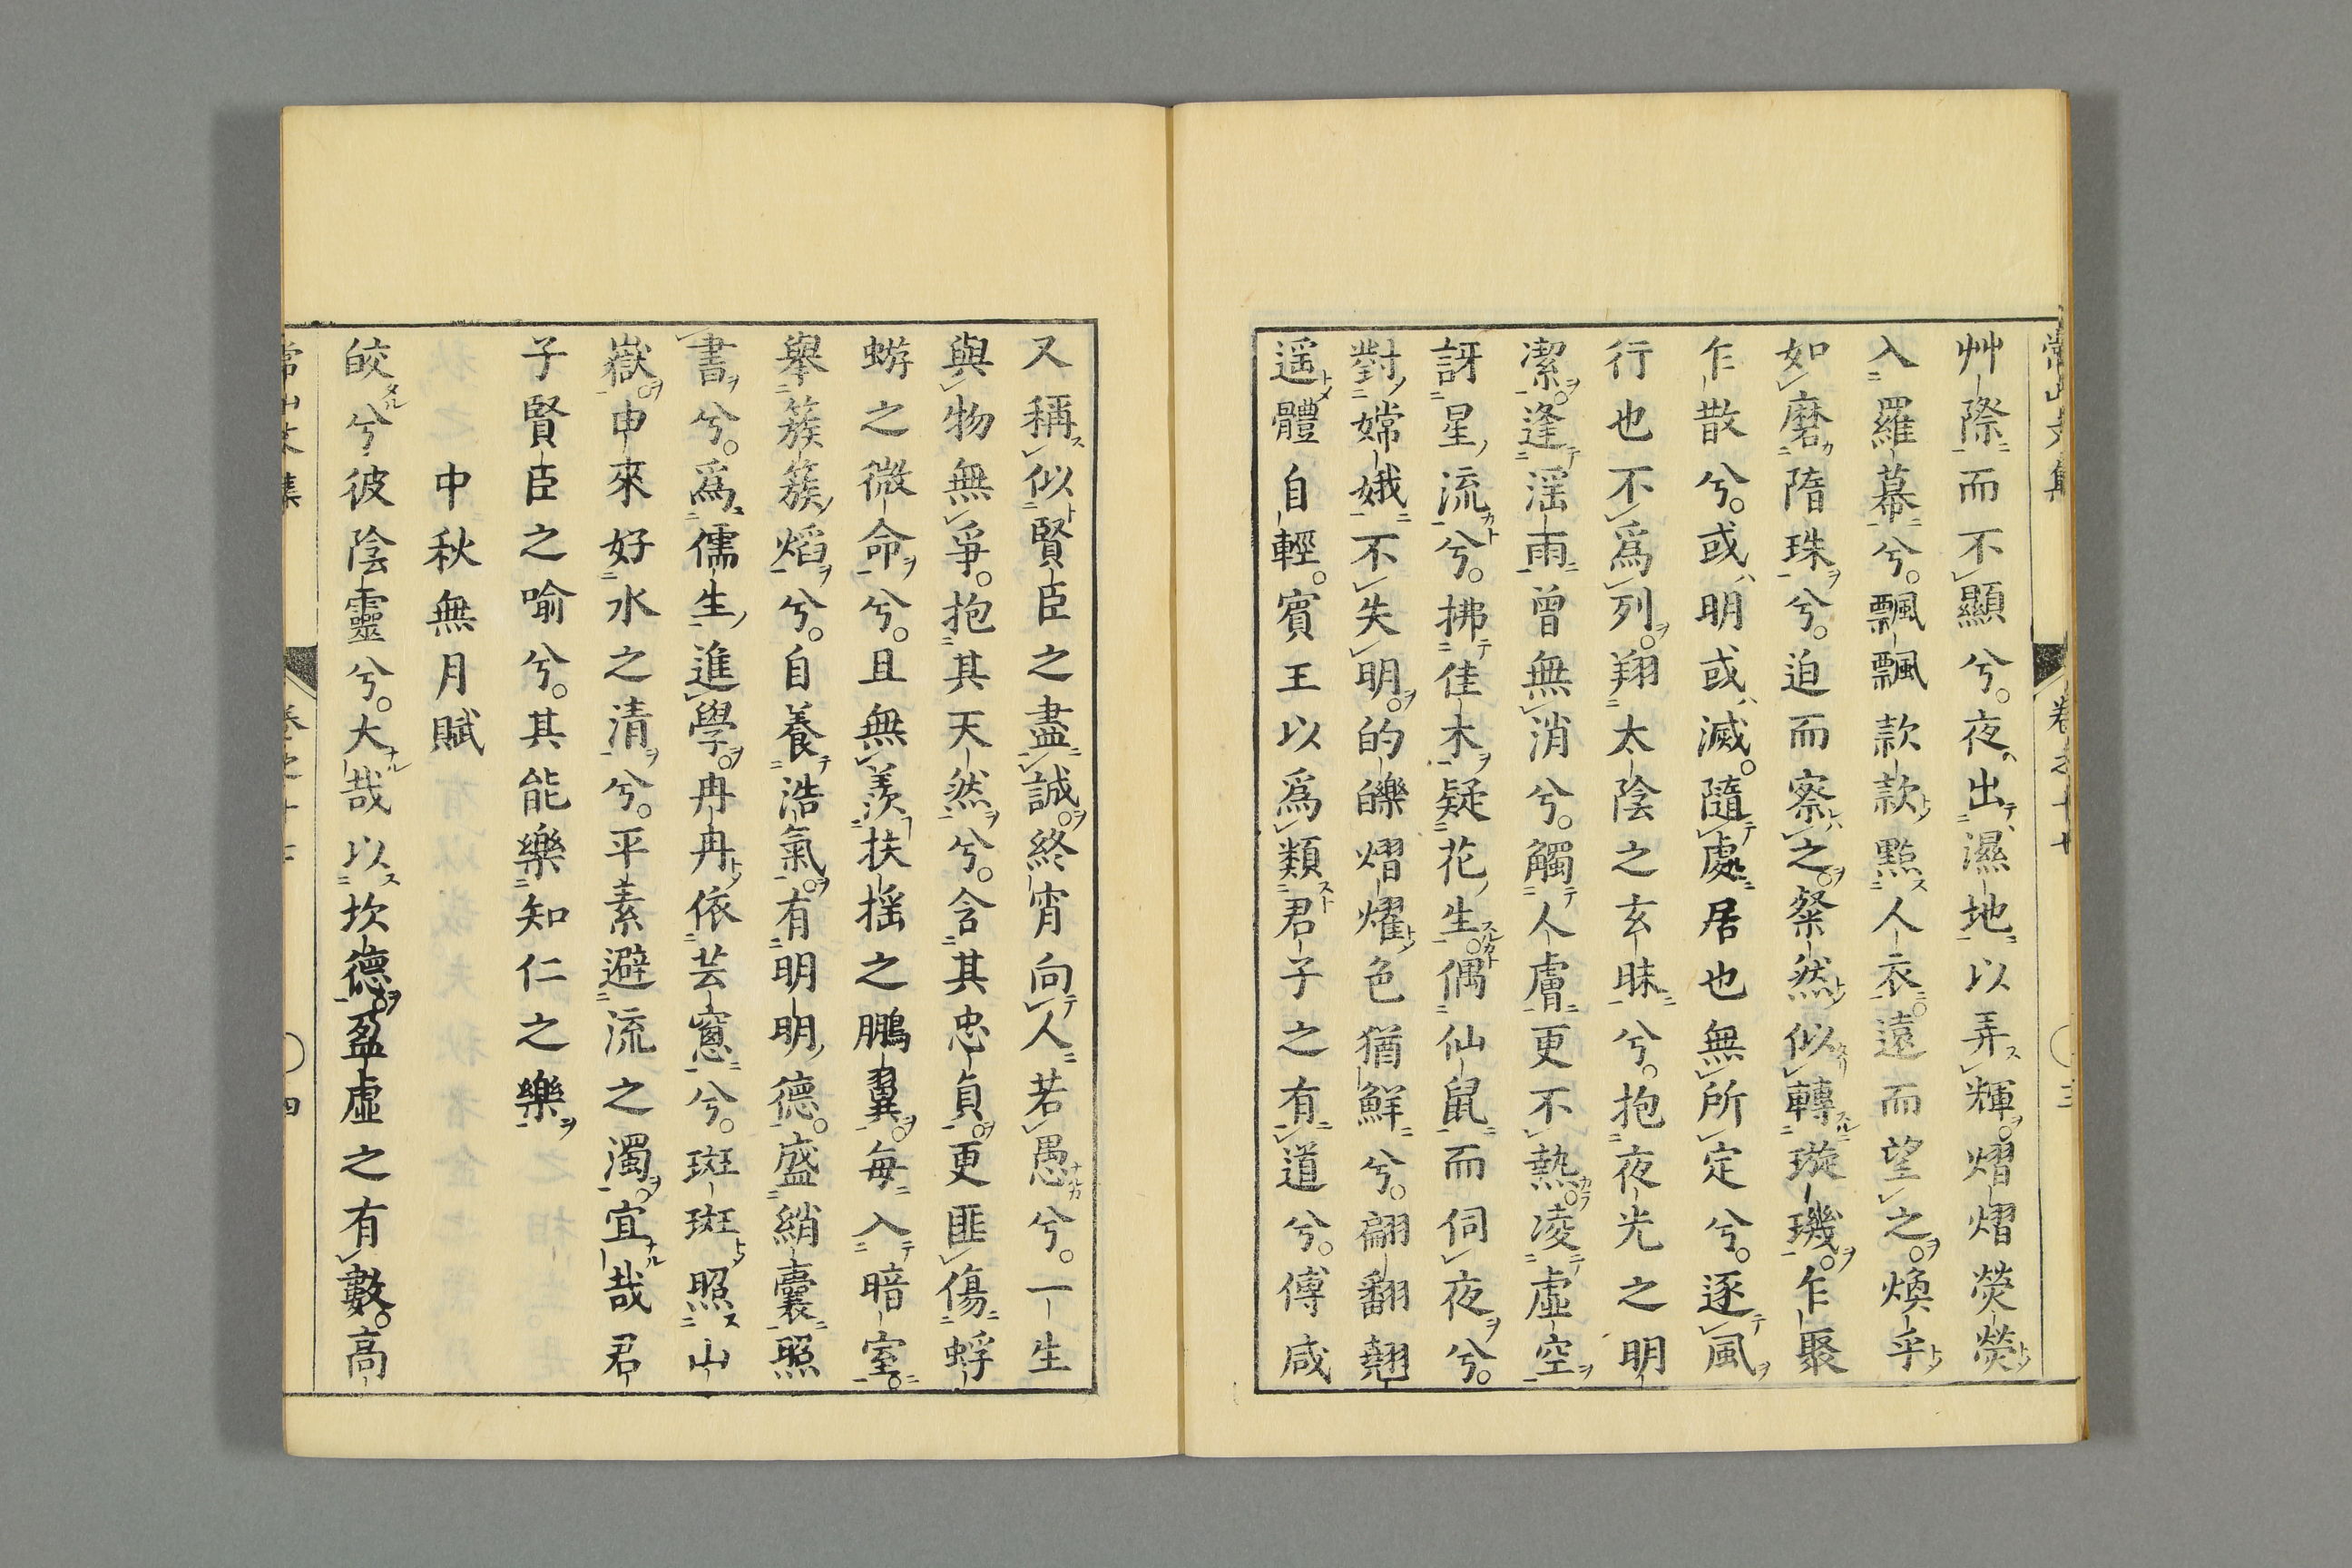 艸際而不顯兮。夜出濕地以弄輝。熠熠熒熒
入羅幕兮。飄飄款款點人衣。遠而望之。煥乎
如磨隋珠兮。迫而察之。粲然似轉璇璣。乍聚
乍散兮。或明或滅。隨處居也無所定兮。逐風
行也不爲列。翔太陰之玄昧兮。抱夜光之明
潔。逢滛雨曾無消兮。觸人膚更不熱。凌虛空
訝星流兮。拂佳木疑花生。偶仙鼠而伺夜兮。
對嫦娥不失明。的皪熠燿色猶鮮兮。翩翻翹
遥體自輕。賓王以爲類君子之有道兮。傅咸
又稱似賢臣之盡誠。終宵向人若愚兮。一生
與物無爭。抱其天然兮。含其忠貞。更匪傷蜉
蝣之微命兮。且無羨扶揺之鵬翼。毎入暗室。
舉簇簇熖兮。自養浩氣。有明明德。盛綃囊照
書兮。爲儒生進學。冉冉依芸窻兮。斑斑照山
嶽。由來好水之清兮。平素避流之濁。宜哉君
子賢臣之喻兮。其能樂知仁之樂
中秋無月賦
皎兮彼陰靈兮。大哉以坎德。盈虛之有數。高
常山文集 卷之十七 四